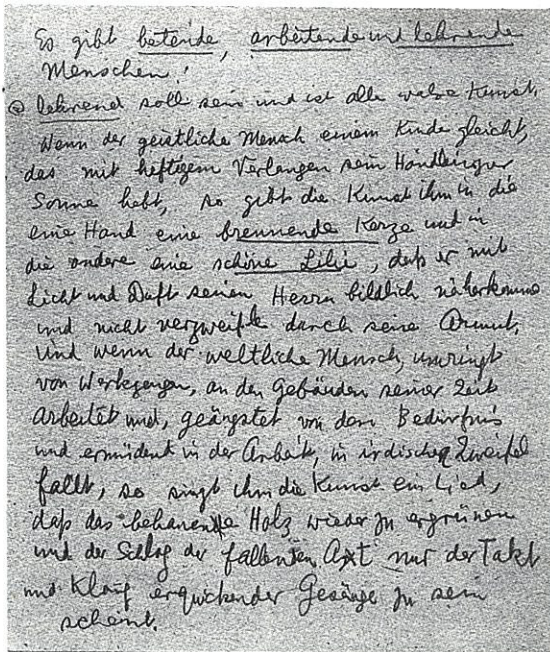 Es gibt betende, arbeitende und lehrende
Menschen!
lehrend soll sein und ist alle wahre Kunst.
Wenn der geistliche Mensch einem Kinde gleicht,
das mit heftigem Verlangen sein Händlein zur
Sonne hebt, so gibt die Kunst ihm in die
eine Hand eine brennende Kerze und in
die andere eine schöne Lilie, daß er mit
Licht und Duft seinen Herrn bildlich näherkomme
und nicht verzweifle durch seine Armut,
Und wenn der weltliche Mensch, umringt
von Werkzeugen, an den Gebäuden seiner Zeit
arbeitet und, geängstet von dem Bedürfnis
und ermüdent in der Arbeit, in irdischen Zweifel
fällt, so singt ihm die Kunst ein Lied,
daß das behauene Holz wieder zu ergrünen
und der Schlag der fallenden Axt nur der Takt
und Klang erquickender Gesänge zu sein
scheint.